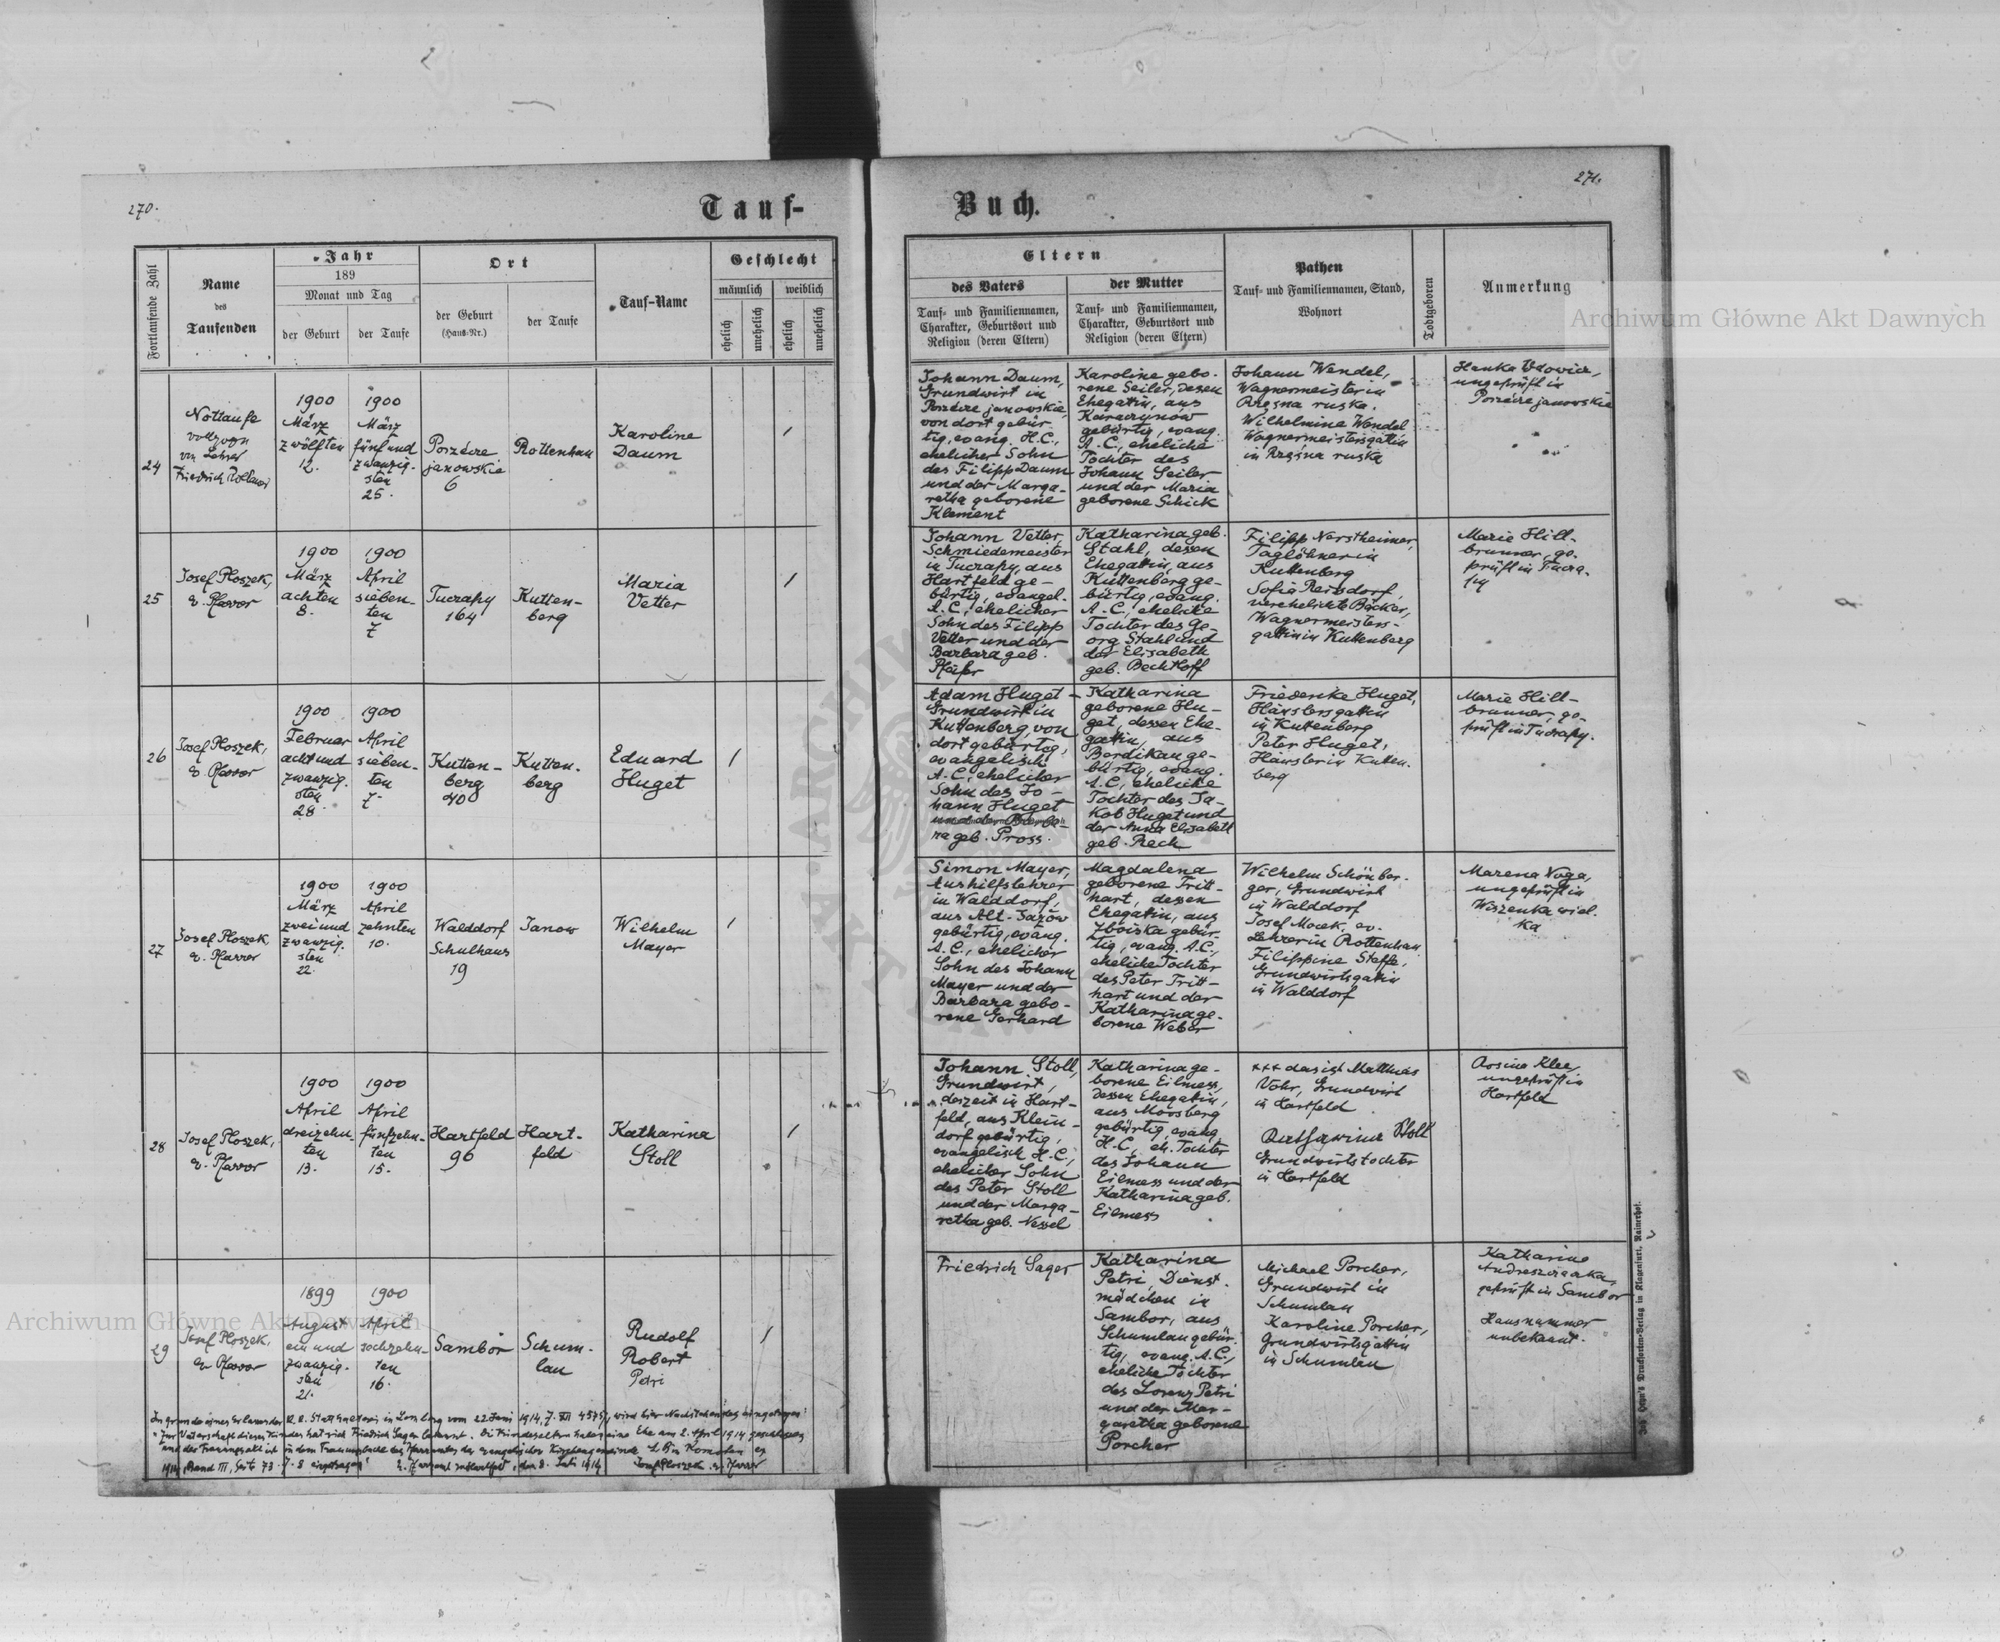 270.
271.
Tauf-
Buch.
Fortlaufende Zahl
Name
des
Taufenden
Jahr
189
Monat und Tag
der Geburt
der Taufe
Ort
der Geburt
(Haus-Nr.)
der Taufe
Tauf-Name
Geschlecht
männlich
weiblich
ehelich
unehelich
ehelich
unehelich
Eltern
des Vaters
Tauf- und Familiennamen,
Charakter, Geburtsort und
Religion (deren Eltern)
der Mutter
Tauf- und Familiennamen,
Charakter, Geburtsort und
Religion (deren Eltern)
Pathen
Tauf- und Familiennamen, Stand,
Wohnort
Todtgeboren
Anmerkung
24
Nottaufe
vollzogen
von Lehrer
Friedrich
1900
März
zwölften
12.
1900
März
fünfund
zwanzig-
sten
25.
Porzécze
janowskie
6
Rottenhan
Karoline
Daum
/
Johann Daum,
Grundwirt in
Porzécze janowskie,
von dort gebür-
tig, evang. H.C.,
ehelicher Sohn
des Filipp Daum
und der Marga-
retha geborene
Klement
Karoline gebo-
rene Seiler, dessen
Ehegatin, aus
Karaczynów
gebürtig, evang.
A.C., eheliche
Tochter des
Johann Seiler
und der Maria
geborene Schick
Johann Wendel,
Wagnermeister in
Rzęsna ruska.
Wilhelmine Wendel
Wagnermeistersgattin
in Rzęsna ruska
Hanka Wdowicz,
ungeprüft in
Porzécze janowskie
25
Josef Ploszek,
ev. Pfarrer
1900
März
achten
8.
1900
April
sieben-
ten
7
Tuczapy
164
Kutten-
berg
Maria
Vetter
/
Johann Vetter,
Schmiedemeister
in Tuczapy, aus
Hartfeld ge-
bürtig, evangel.
A.C., ehelicher
Sohn des Filipp
Vetter und der
Barbara geb.
Pfeifer
Katharina geb.
Stahl, dessen
Ehegattin, aus
Kuttenberg ge-
bürtig, evang.
A.C., eheliche
Tochter des Ge-
org Stahl und
der Elisabeth
geb. Bechtloff
Filipp Nerstheimer,
Taglöhner in
Kuttenberg
Sofia Reisdorf,
verehelichte Bäcker,
Wagnermeisters-
gattin in Kuttenberg
Marie Hill-
brunner, ge-
prüft in Tucza-
py
26
Josef Ploszek,
ev. Pfarrer
1900
Februar
achtund
zwanzig-
sten
28.
1900
April
sieben-
ten
7.
Kutten-
berg
40
Kutten-
berg
Eduard
Huget
/
Adam Huget
Grundwirt in
Kuttenberg, von
dort gebürtig,
evangelisch
A.C., ehelicher
Sohn des Jo-
hann Huget
und der Barba-
ra geb. Pross.
Katharina
geborene Hu-
get, dessen Ehe-
gattin, aus
Berdikau ge-
bürtig, evang.
A.C., eheliche
Tochter des Ja-
kob Huget und
der Anna Elisabeth
geb. Rech
Friederike Huget,
Häuslersgattin
in Kuttenberg
Peter Huget,
Häusler in Kutten-
berg
Marie Hill-
brunner, ge-
prüft in Tuczapy.
27
Josef Ploszek,
ev. Pfarrer
1900
März
zweiund
zwanzig-
sten
22.
1900
April
zehnten
10.
Walddorf
Schulhaus
19
Janow
Wilhelm
Mayer
/
Simon Mayer,
Aushilfslehrer
in Walddorf,
aus Alt-Jazów
gebürtig, evang.
A.C., ehelicher
Sohn des Johann
Mayer und der
Barbara gebo-
rene Gerhard
Magdalena
geborene Tritt-
hart, dessen
Ehegattin, aus
Zboiska gebür-
tig, evang. A.C.,
eheliche Tochter
des Peter Tritt-
hart und der
Katharina ge-
borene Weber
Wilhelm Schönber-
ger, Grundwirt
in Walddorf
Josef Mock, ev.
Lehrer in Rottenhan
Filippine Steffe,
Grundwirtsgattin
in Walddorf
Marena Noga,
ungeprüft in
Wiszenka wiel-
ka
28
Josef Ploszek,
ev. Pfarrer
1900
April
dreizehn-
ten
13.
1900
April
fünfzehn-
ten
15.
Hartfeld
96
Hart-
feld
Katharina
Stoll
/
Johann Stoll,
Grundwirt,
derzeit in Hart-
feld, aus Klein-
dorf gebürtig,
evangelisch H.C.,
ehelicher Sohn
des Peter Stoll
und der Marga-
retha geb. Nessel
Katharina ge-
borene Eilmess,
dessen Ehegatin,
aus Moosberg
gebürtig, evang.
H.C., eh. Tochter
des Johann
Eilmess und der
Katharina geb.
Eilmess
xxx das ist Matthias
Vohr, Grundwirt
in Hartfeld
Katharina Stoll
Grundwirtstochter
in Hartfeld
Rosina Klee,
ungeprüft in
Hartfeld
29
Josef Ploszek,
ev. Pfarrer
1899
August
einund
zwanzig-
sten
21.
1900
April
sechzehn-
ten
16.
Sambor
Schum-
lau
Rudolf
Robert
Petri
/
Friedrich Sager
Katharina
Petri, Dienst-
mädchen in
Sambor, aus
Schumlau gebür-
tig, evang. A.C.,
eheliche Tochter
des Lorenz Petri
und der Mar-
garetha geborene
Porcher
Michael Porcher,
Grundwirt in
Schumlau
Karoline Porcher,
Grundwirtsgattin
in Schumlau
Katharina
geprüft in Sambor
Hausnummer
unbekannt.
In Grunde eines Erlasses der K.K. Statthalterei in Lemberg vom 22 Juni 1914, Z. XII 4575, wird hier Nachstehendes eingetragen:
"Zur Vaterschaft dieses Kindes hat sich Friedrich Sager bekannt. Die Kindeseltern haben eine Ehe am 2. April 1914 geschlossen
und der Trauungsakt ist in dem Trauungsbuche des Pfarramtes der evangelischen Kirchengemeinde
1914, Band III, Seite 73 Z. 8 eingetragen" den 8. Juli 1914 Josef Ploszek ev. Pfarrer
Joh. Leon's Drucksorten-Verlag in Klagenfurt, Rainerhof.
Archiwum Główne Akt Dawnych
Archiwum Główne Akt Dawnych